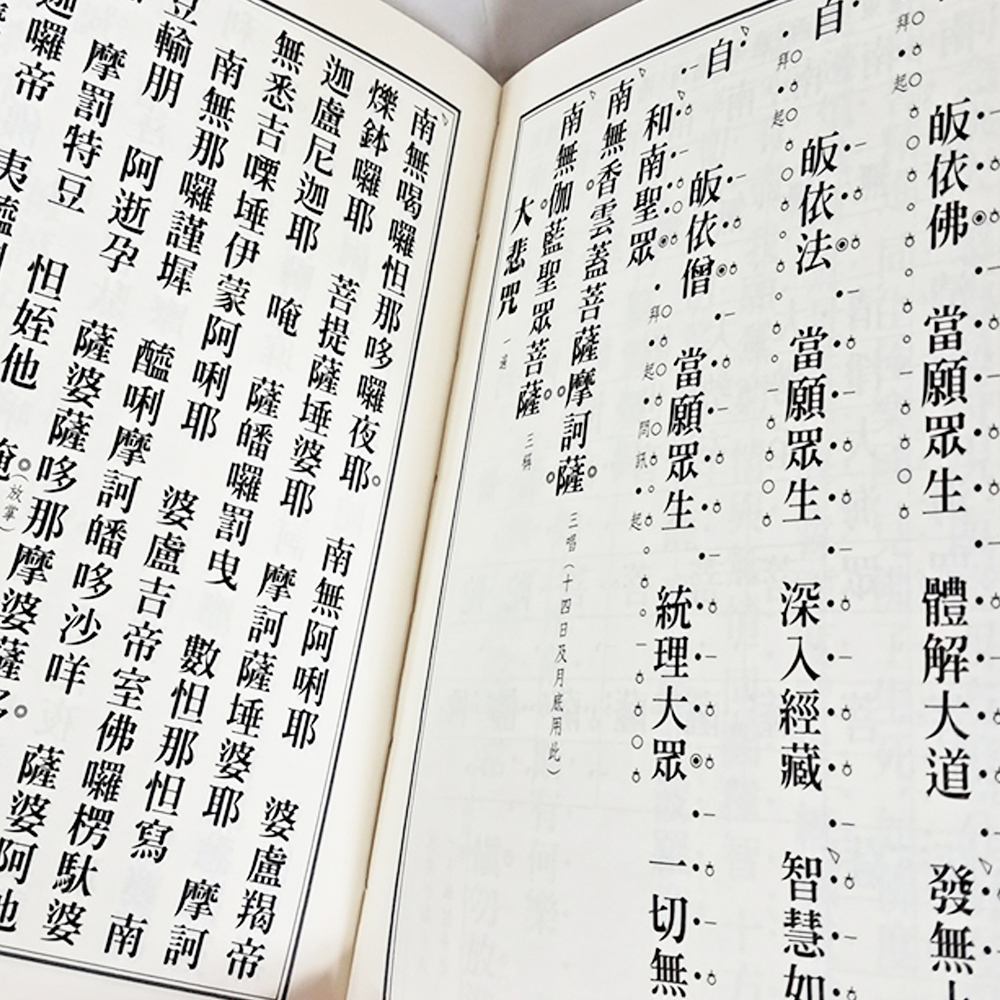 皈依佛 當願眾生 體解大道 發無
自 皈依法 當願眾生 深入經藏 智慧如
自 皈依僧 當願眾生 統理大眾 一切無
和南聖眾
南無香雲蓋菩薩摩訶薩 三唱（十四日及月底用此）
南無伽藍聖眾菩薩 三稱
大悲咒 一遍
南無喝囉怛那哆囉夜耶 南無阿唎耶 婆盧羯帝
爍鉢囉耶 菩提薩埵婆耶 摩訶薩埵婆耶 摩訶
迦盧尼迦耶 唵 薩皤囉罰曳 數怛那怛寫 南
無悉吉嘌埵伊蒙阿唎耶 婆盧吉帝室佛囉楞馱婆
南無那囉謹墀 醯唎摩訶皤哆沙咩 薩婆阿他
豆輸朋 阿逝孕 薩婆薩哆那摩婆薩
摩罰特豆 怛姪他 唵（放掌）
囉帝 夷醯唎